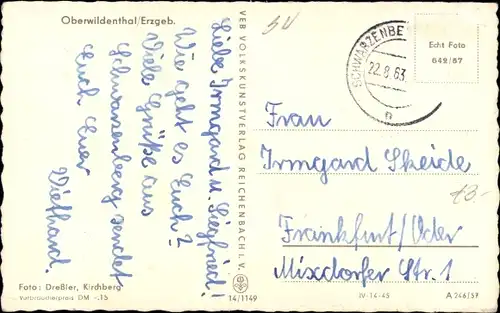 Oberwildenthal/Erzgeb.
Liebe Irmgard u. Siegfried!
Wie geht es Euch?
Viele Grüße aus
Schwarzenberg sendet
Euch Euer
Diethard.
Foto: Dreßler, Kirchberg
Verbraucherpreis DM -.15
VEB VOLKSKUNSTVERLAG REICHENBACH i. V.
14/1149
SCHWARZENBE
22.8.63
Echt Foto
642/57
Frau
Irmgard Skeide
Frankfurt/Oder
Mixdorfer Str. 1
IV-14-45
A 246/57